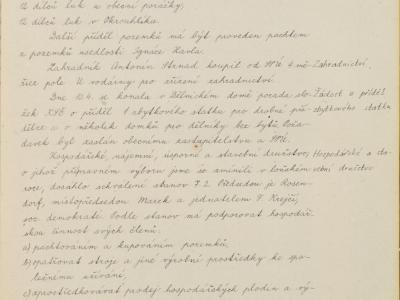 12 dílců luk u obecní porážky,
12 dílců luk v Okrouhlíku.
Další příděl pozemků má být proveden pachtem
z pozemků usedlosti Ignáce Havla.
Zahradník Antonín Strnad koupil od MNV
pole U vodárny pro zřízení zahradnictví.
Dne 10.4. se konala v Dělnickém domě porada
KSČ o příděl zbytkového statku pro drobné
a o několik domků pro dělníky bez bytů. Poža-
davek byl zaslán obecnímu zastupitelstvu a MNV.
Hospodářské, nájemní, úsporné a stavební družstvo,
o jehož přípravném výboru jsme se zmínili v loňském
roce, dosáhlo schválení stanov 7.2. Předsedou je Rosen-
dorf, místopředsedou Marek a jednatelem F. Krejčí,
soc. demokraté. Podle stanov má podporovat hospodář-
skou činnost svých členů:
a) pachtováním a kupováním pozemků,
b) opatřovat stroje a jiné výrobní prostředky ke spo-
lečnému užívání,
c) zprostředkovávat prodej hospodářských plodin a vý-